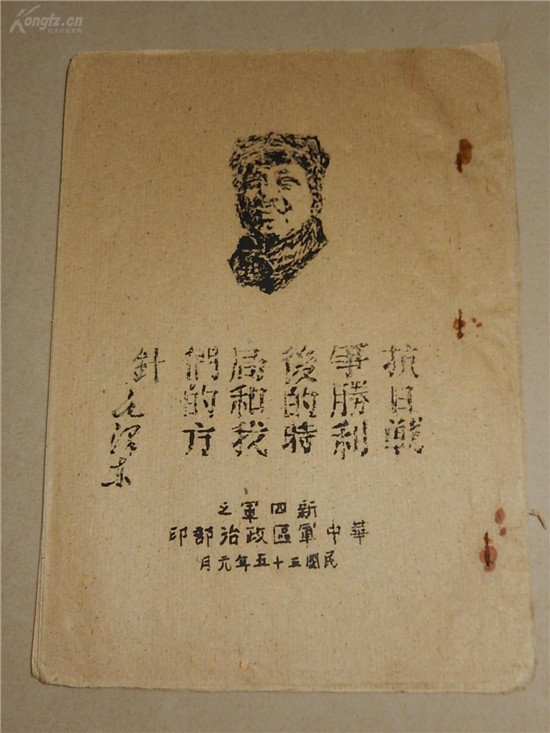 Kongfz.cn
抗日戰
爭勝利
後的時
局和我
們的方
針
毛泽东
新四軍之
華中軍區政治部印
民國三十五年元月